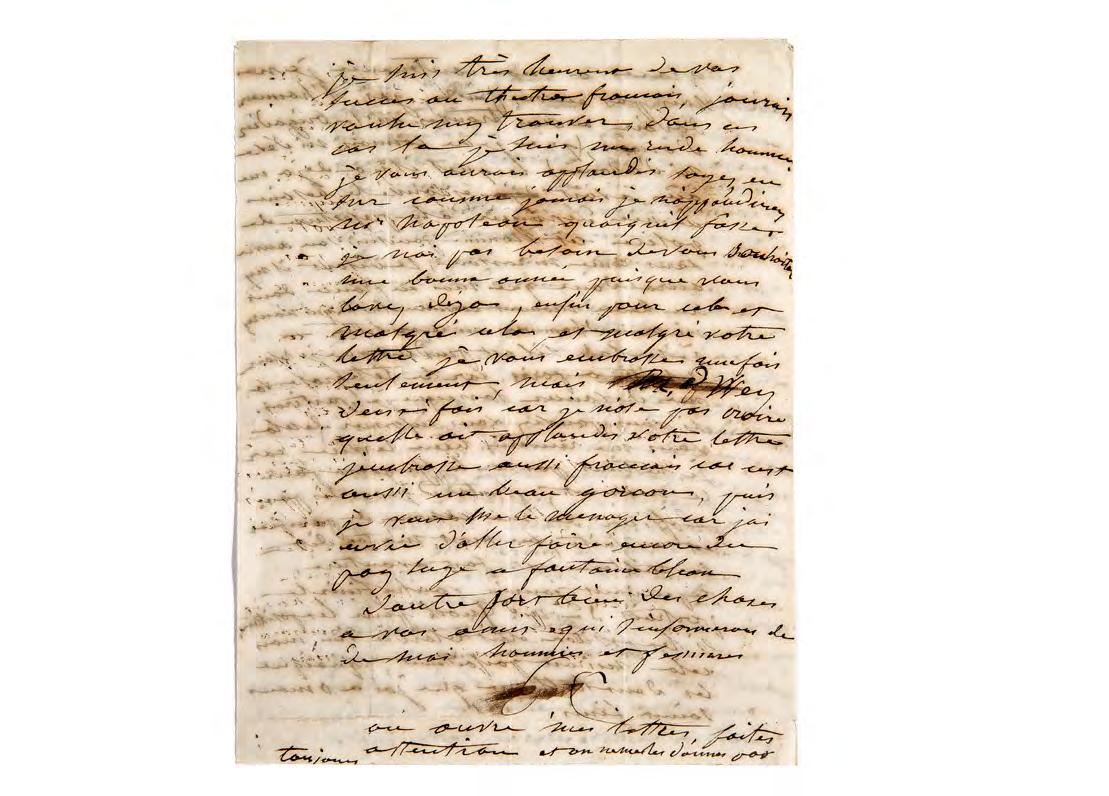 je suis très heureux de vos
succes au theatre francais, jaurais
voulu my trouver, dans ce
cas la je suis un rude homme
je vous aurais applaudis soyez en
sur comme jamais je napplaudirey
ni napoleon quoiquil fasse.
je nai pas besoin devous souhaiter
une bonne année puisque vous
lavez déja, enfin pour cela et
malgré cela et malgré votre
lettre je vous embrasse unefois
seulement, mais Wey
deux fois car je nose pas croire
quelle ait applaudis votre lettre
jembrasse aussi francais car cest
aussi un beau garcon, puis
je veux me le menager car jai
envie daller faire encore du
paysage a fontainebleau
Dautre part bien des choses
a vos amis qui sinformeron de
de moi hommes et femmes
on ouvre mes lettres, faites
attention et on nemeles donnes pas
toujours